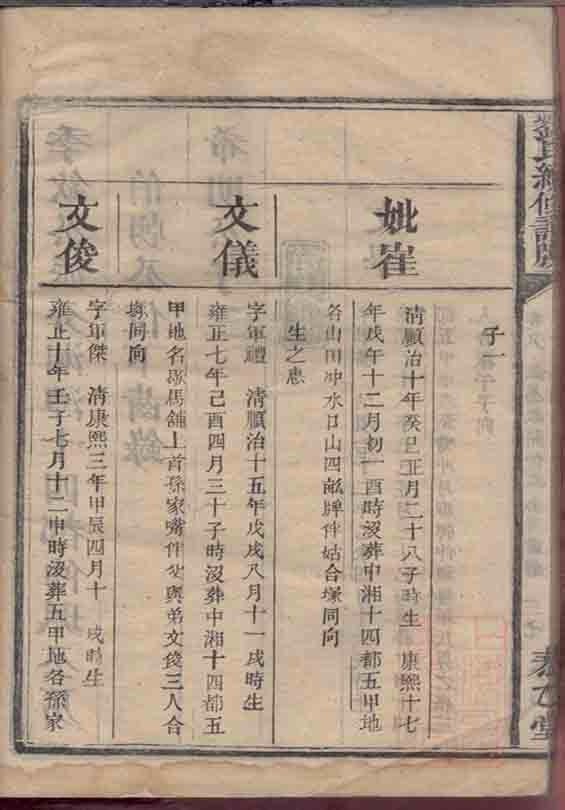 子一
妣崔
清順治十年癸巳正月二十八子時生 康熙十七
年戊午十二月初一酉時沒葬中湘十四都五甲地
名山田冲水口山四𠭇牌伴姑合塚同向
生之惠
文儀
字軍禮 清順治十五年戊戌八月十一戌時生
雍正七年己酉四月三十子時沒葬中湘十四都五
甲地名駟馬舖上首孫家嘴伴父與弟文俊三人合
塚同向
文俊
字軍傑 清康熙三年甲辰四月十 戌時生
雍正十年壬子七月十二申時沒葬五甲地名孫家